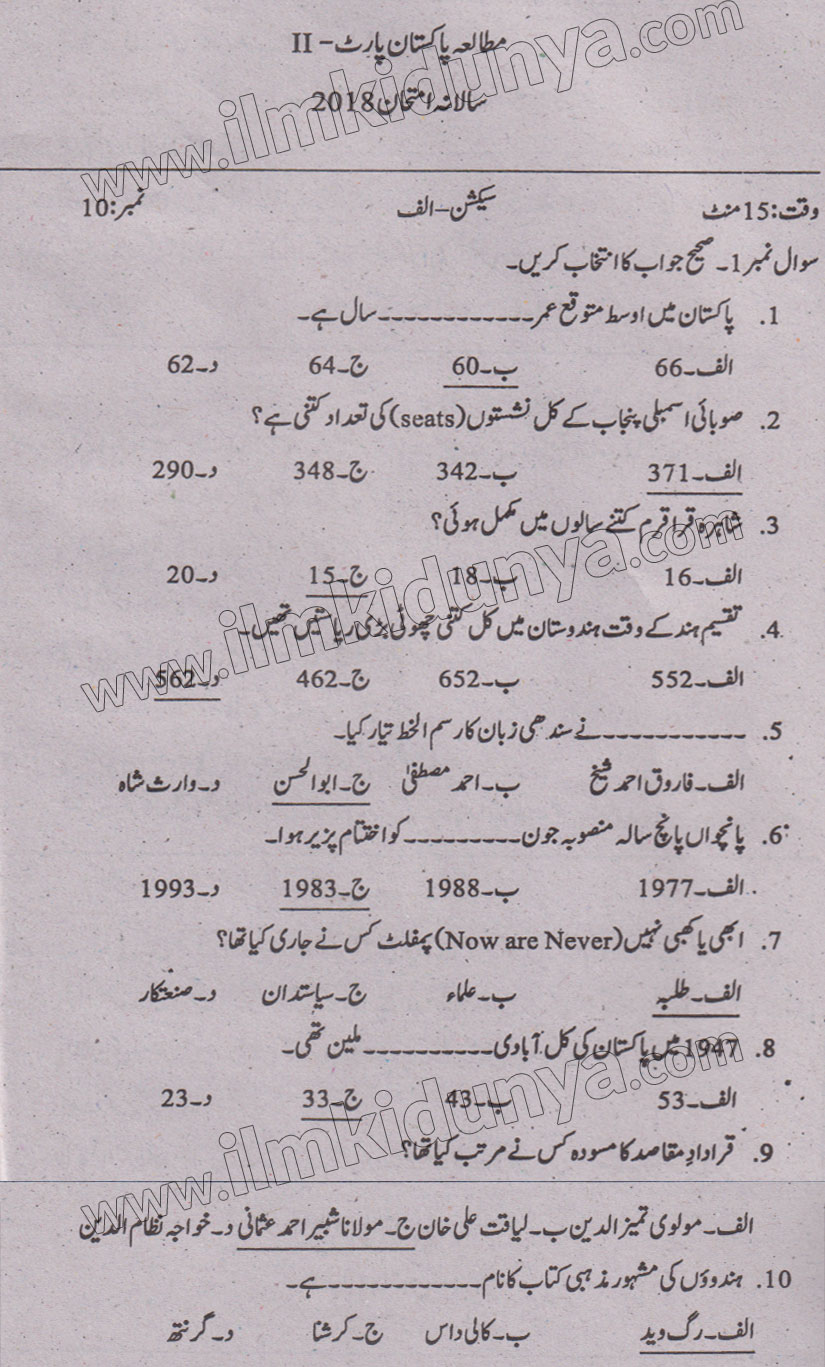 مطالعہ پاکستان پارٹ - II
سالانہ امتحان 2018
www.ilmkidunya.com
وقت: 15 منٹ سیکشن - الف نمبر: 10
سوال نمبر 1۔ صحیح جواب کا انتخاب کریں۔
1. پاکستان میں اوسط متوقع عمر------------ سال ہے۔
الف۔ 66 ب۔ 60 ج۔ 64 د۔ 62
2. صوبائی اسمبلی پنجاب کے کل نشستوں (seats) کی تعداد کتنی ہے؟
الف۔ 371 ب۔ 342 ج۔ 348 د۔ 290
3. شاہرہ قراقرم کتنے سالوں میں مکمل ہوئی؟
الف۔ 16 ب۔ 18 ج۔ 15 د۔ 20
www.ilmkidunya.com
4. تقسیم ہند کے وقت ہندوستان میں کل کتنی چھوٹی بڑی ریاستیں تھیں۔
الف۔ 552 ب۔ 652 ج۔ 462 د۔ 562
5. ------------ نے سندھی زبان کا رسم الخط تیار کیا۔
الف۔ فاروق احمد شیخ ب۔ احمد مصطفیٰ ج۔ ابوالحسن د۔ وارث شاہ
6. پانچواں پانچ سالہ منصوبہ جون---------- کو اختتام پزیر ہوا۔
الف۔ 1977 ب۔ 1988 ج۔ 1983 د۔ 1993
7. ابھی یا کبھی نہیں (Now are Never) پمفلٹ کس نے جاری کیا تھا؟
الف۔ طلبہ ب۔ علماء ج۔ سیاستدان د۔ صنعتکار
8. 1947 میں پاکستان کی کل آبادی---------- ملین تھی۔
الف۔ 53 ب۔ 43 ج۔ 33 د۔ 23
www.ilmkidunya.com
9. قرادادِ مقاصد کا مسودہ کس نے مرتب کیا تھا؟
الف۔ مولوی تمیز الدین ب۔ لیاقت علی خان ج۔ مولانا شبیر احمد عثمانی د۔ خواجہ نظام الدین
10. ہندوؤں کی مشہور مذہبی کتاب کا نام------------ ہے۔
الف۔ رگ وید ب۔ کالی داس ج۔ کرشنا د۔ گرنتھ